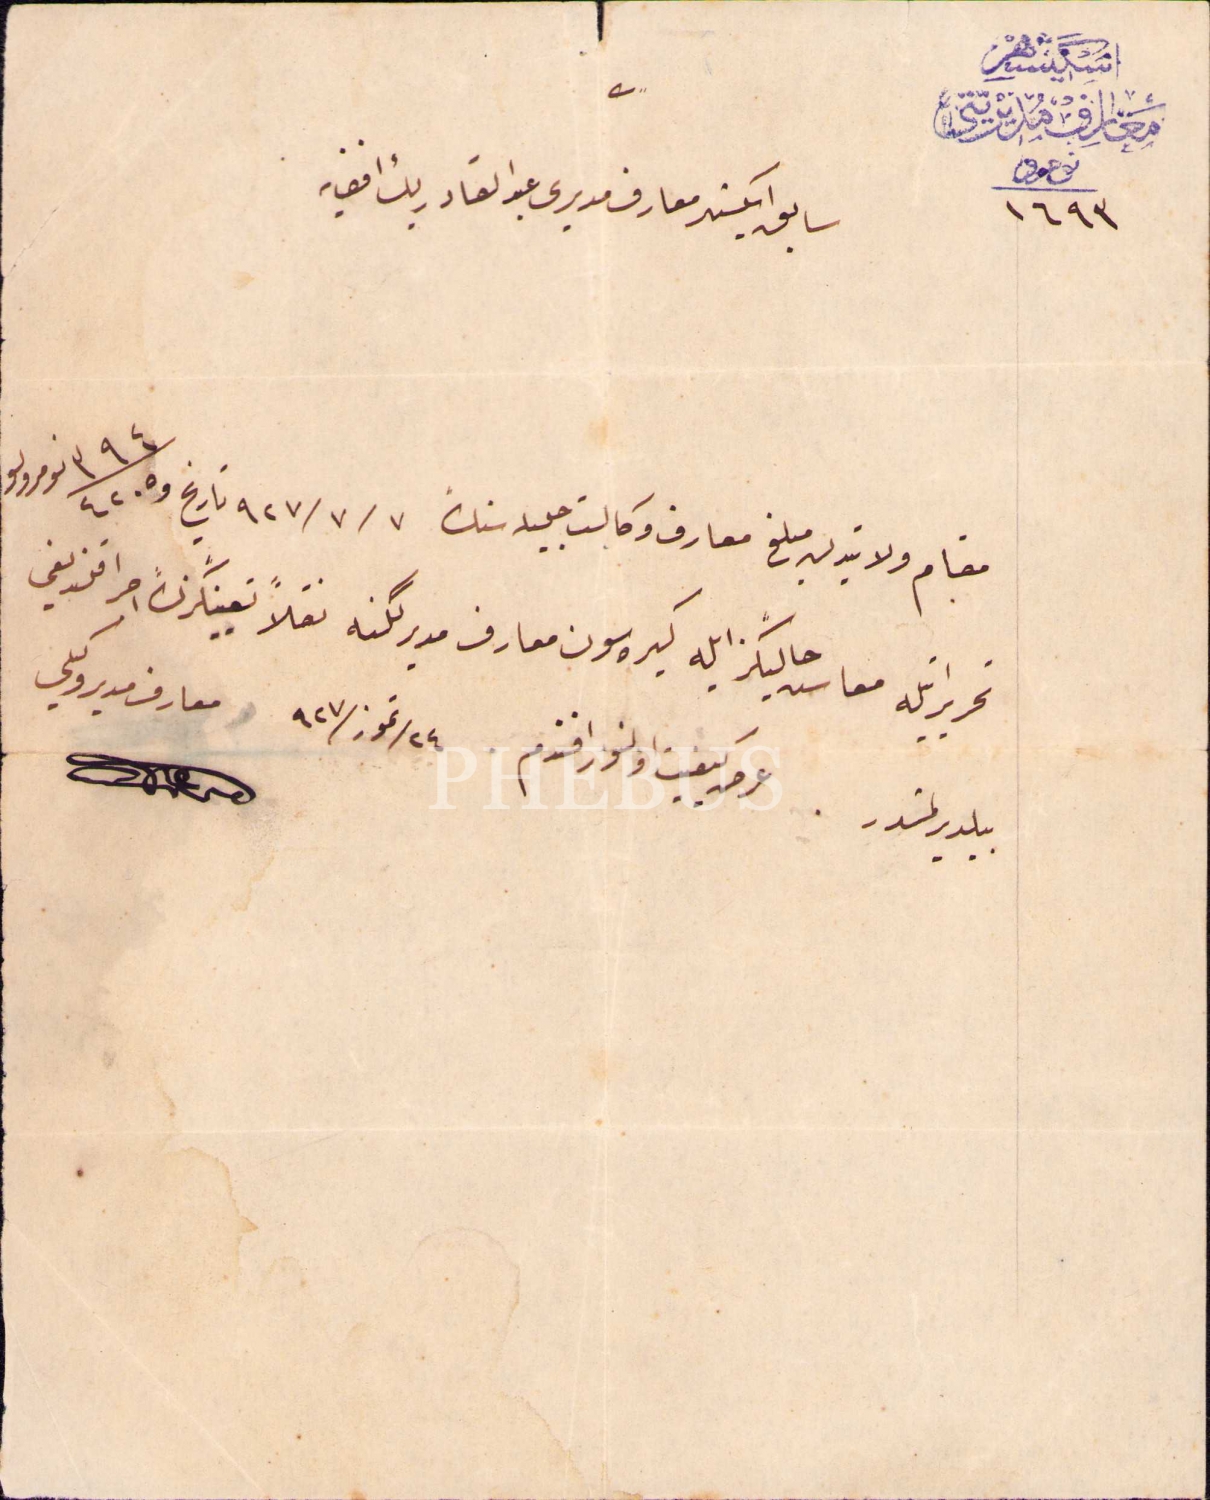 اسكيشهر
معارف مديريتى
نومرو
١٦٩٣
سابق اسكيشهر معارف مديرى عبدالقادر بك افندى يه
مقام ولايتدن مبلغ معارف وكالت جليله سنك ٧/٧/٩٢٧ تاريخ و ٣٩٤ نومرولو
تحريراتيله معاش حاليكز ايله كيره سون معارف مديرلكنه نقلاً تعيينكزك اجرا قلنديغى
بيلديرلمشدر. عرض كيفيت اولنور افندم. ٢٤/تموز/٩٢٧
معارف مدير وكيلى
PHEBUS